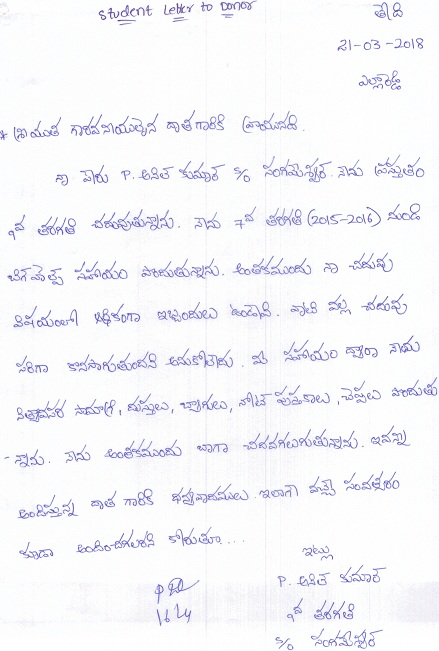 Student Letter to Donor
తేది
21-03-2018
ఎల్లారెడ్డి
* శ్రీయుత గౌరవనీయులైన దాత గారికి వ్రాయునది.
నా పేరు P. అనిల్ కుమార్ S/o సంగమేశ్వర్. నేను ప్రస్తుతం
9వ తరగతి చదువుతున్నాను. నేను 7వ తరగతి (2015-2016) నుండి
బిగ్ హెల్ప్ సహాయం పొందుతున్నాను. అంతకుముందు నా చదువు
విషయంలో ఆర్థికంగా ఇబ్బందులు ఉండేవి. వాటి వల్ల చదువు
సరిగా కొనసాగుతుందని అనుకోలేదు. మీ సహాయం ద్వారా నేను
నిత్యావసర సామాగ్రి, దుస్తులు, బ్యాగులు, నోట్ పుస్తకాలు, చెప్పులు పొందుతు
-న్నాను. నేను అంతకుముందు బాగా చదవగలుగుతున్నాను. ఇవన్నీ
అందిస్తున్న దాత గారికి ధన్యవాదములు. ఇలాగే వచ్చే సంవత్సరం
కూడా అందించగలరని కోరుతూ...
ఇట్లు
P. అనిల్ కుమార్
9వ తరగతి
S/o సంగమేశ్వర్